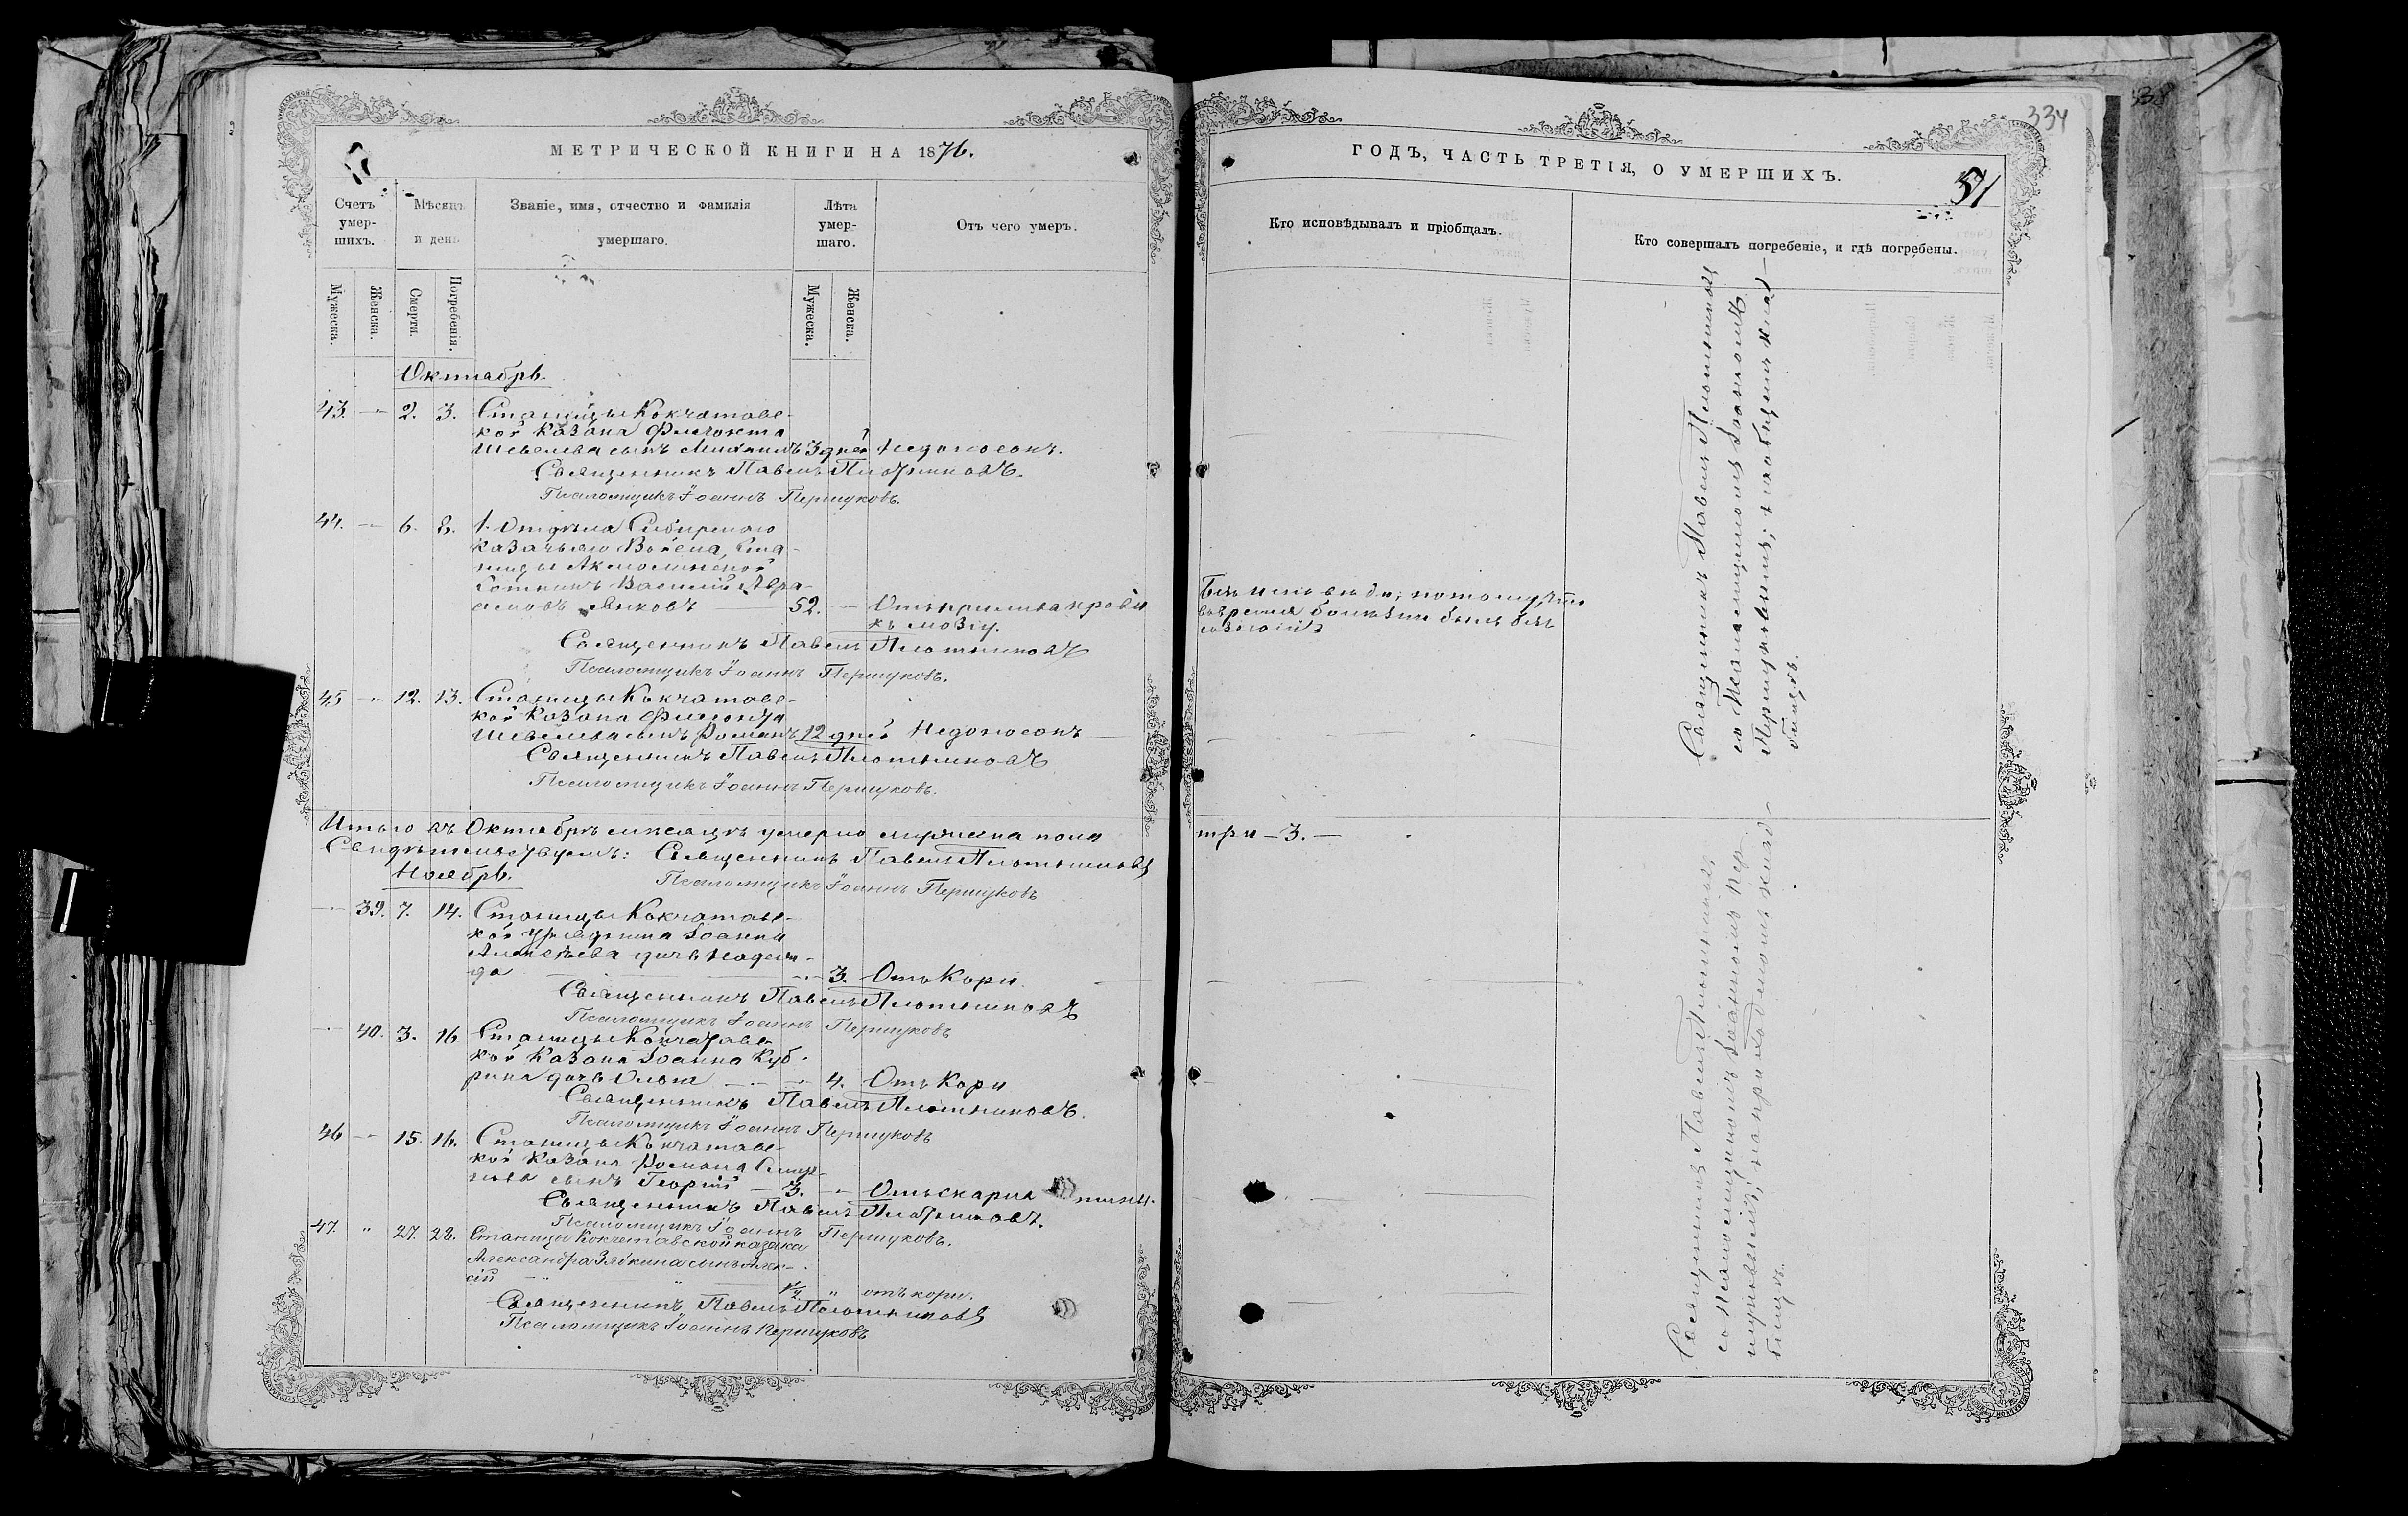 МЕТРИЧЕСКОЙ КНИГИ НА 1876.
Счетъ умер-шихъ.
Мѣсяцъ и день
Званіе, имя, отчество и фамилія умершаго.
Лѣта умер-шаго.
Отъ чего умеръ.
Мужеска.
Женска.
Смерти.
Погребенія.
Мужеска.
Женска.
Октябрь.
43. 2. 3. Станицы Кокчетавс-
кой казака
Шевелева сынъ Михаилъ 3 дней Недоносокъ.
Священникъ Павелъ Плотниковъ.
Псаломщикъ Іоаннъ Першуковъ.
44. 6. 8. 1. Отдѣла Сибирскаго
казачьяго Войска, Ста-
ницы Акмолинской
Сотникъ Василій Авра-
амовъ 52. Отъ прилива крови
къ мозгу.
Священникъ Павелъ Плотниковъ
Псаломщикъ Іоаннъ Першуковъ.
45 12. 13. Станицы Кокчетавс-
кой казака
Шевелева сынъ Романъ 12 дней Недоносокъ
Священникъ Павелъ Плотниковъ
Псаломщикъ Іоаннъ Першуковъ.
Итого въ Октябрѣ мѣсяцѣ умерло мужеска пола
Свидѣтельствуемъ: Священникъ Павелъ Плотниковъ
Ноябрь. Псаломщикъ Іоаннъ Першуковъ
39. 7. 14. Станицы Кокчетавс-
кой урядника Іоанна
Алексѣева дочь Надеж-
да 3. Отъ Кори
Священникъ Павелъ Плотниковъ
Псаломщикъ Іоаннъ Першуковъ
40. 3. 16 Станицы Кокчетавс-
кой казака Іоанна Куб-
рина дочь Ольга 4. Отъ Кори
Священникъ Павелъ Плотниковъ.
Псаломщикъ Іоаннъ Першуковъ
46 15. 16. Станицы Кокчетавс-
кой казака Романа Смир-
нова сынъ Георгій 3. Отъ скарла тины.
Священникъ Павелъ Плотниковъ.
Псаломщикъ Іоаннъ Першуковъ.
47. " 27. 28. Станицы Кокчетавской казака
Александра Зябкина сынъ Алек-
сій 1/2 " отъ кори.
Священникъ Павелъ Плотниковъ
Псаломщикъ Іоаннъ Першуковъ
334
ГОДЪ, ЧАСТЬ ТРЕТІЯ, О УМЕРШИХЪ.
51
Кто исповѣдывалъ и пріобщалъ.
Кто совершалъ погребеніе, и гдѣ погребены.
Безъ исповѣди, потому, что
во время болѣзни былъ безъ
сознанія
три — 3. —
Священникъ Павелъ Плотниковъ
съ Псаломщикомъ Іоанномъ
Першуковымъ, на общемъ клад-
бищѣ.
Священникъ Павелъ Плотниковъ,
съ Псаломщикомъ Іоанномъ Пер-
шуковымъ, на приходскомъ клад-
бищѣ.